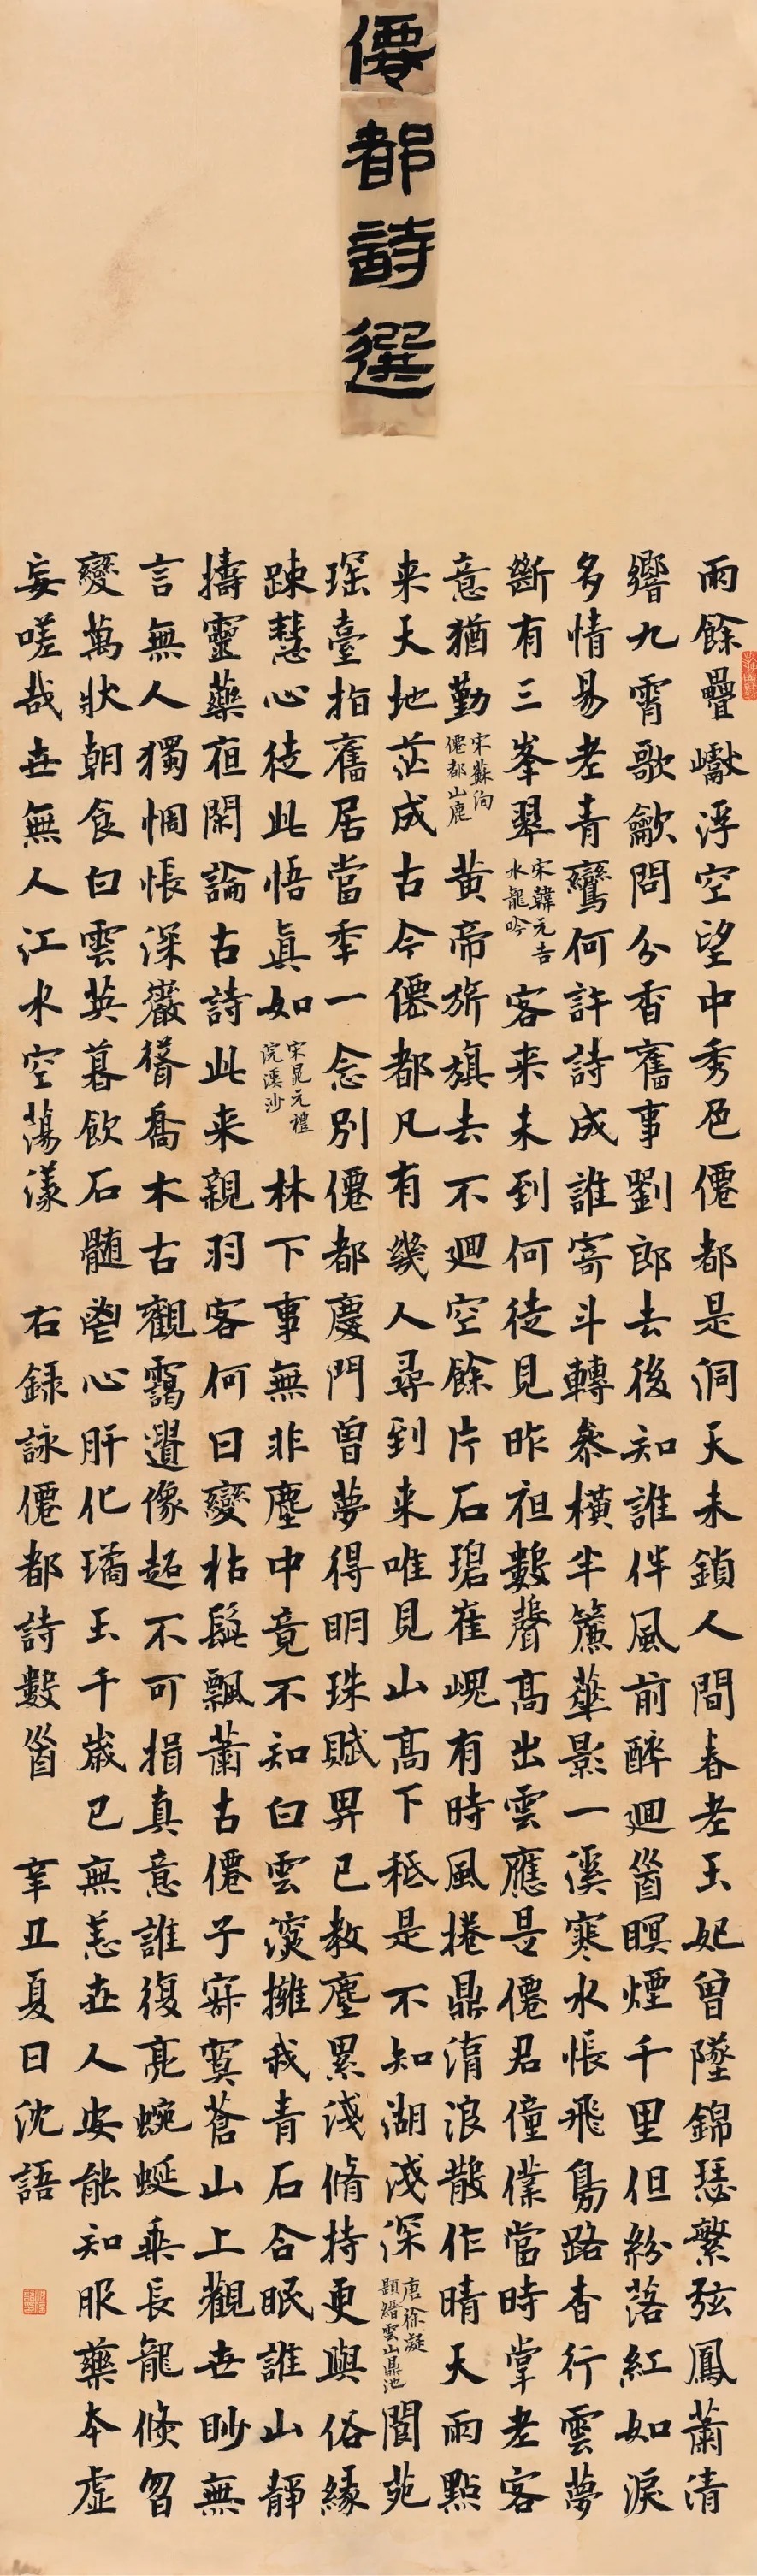 僊都詩選
雨餘疊巘浮空望中秀色僊都是洞天未鎖人間春老玉妃曾墜錦瑟繁弦鳳蕭清
響九霄歌歈問分香舊事劉郎去後知誰伴風前醉廻首暝煙千里但紛落紅如淚
多情易老青鸞何許詩成誰寄斗轉參橫半簾華影一溪寒水悵飛鳧路杳行雲夢
斷有三峯翠
宋韓元吉
水龍吟
客来未到何從見昨祖數聲高出雲應是僊君僮僕當時掌老客
意猶勤
宋蘇洵
僊都山鹿
黃帝旂旗去不廻空餘片石碧崔嵬有時風捲鼎湖浪散作晴天雨點
来天地茫成古今僊都凡有幾人尋到来唯見山高下秪是不知湖淺深
唐徐凝
題縉雲山鼎池
閬苑
瑶臺指舊居當季一念別僊都慶門曾夢得明珠賦畀已教塵累淺脩持更與俗緣
踈慧心從此悟真如
宋晁元禮
浣溪沙
林下事無非塵中竟不知白雲深擁我青石合眠誰山靜
擣靈藥夜閑論古詩此来親羽客何日變枯髭飄蕭古僊子寂寞蒼山上觀世眇無
言無人獨惆悵深巖聳喬木古觀靄遺像超不可揖真意誰復亮蜿蜒乘長龍倏忽
變萬狀朝食白雲英暮飲石髓鬯心肝化璚玉千歲已無恙世人安能知服藥本虛
妄嗟哉世無人江水空蕩漾 右錄詠僊都詩數首 辛丑夏日沈語